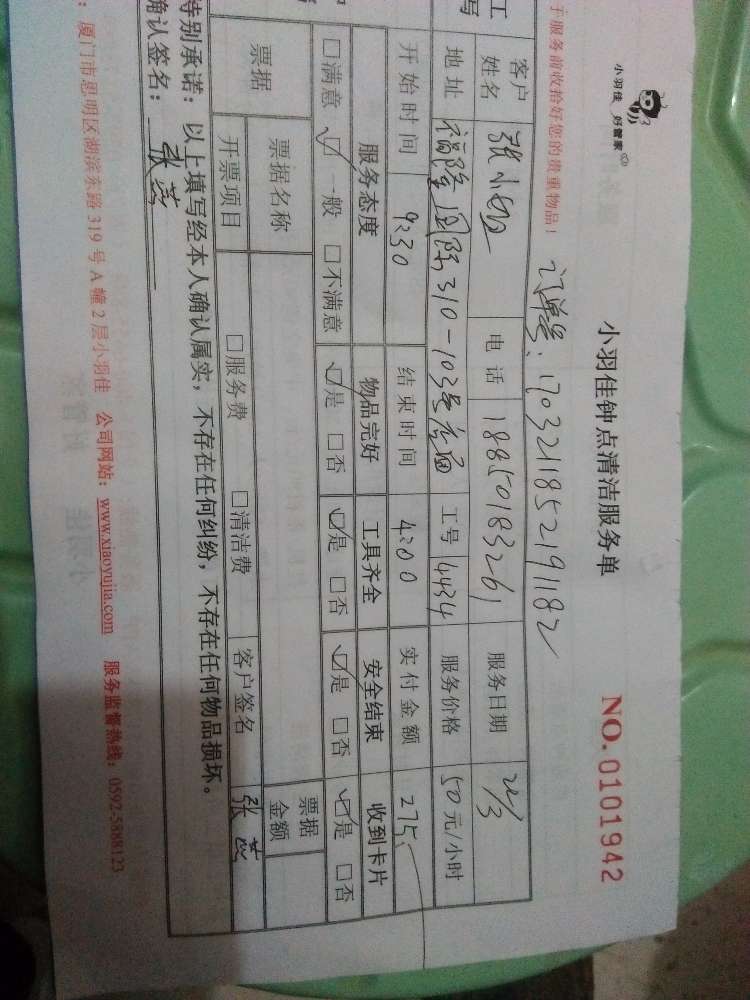 小羽佳 好管家
小羽佳钟点清洁服务单
NO. 0101942
于服务前收拾好您的贵重物品！
订单号：1703211852191182
客户姓名 张小姐 电话 18850183261 服务日期
地址 福隆国际310-103号 工号 4434 服务价格 50元/小时
开始时间 9:30 结束时间 4:00 实付金额 275
服务态度 物品完好 工具齐全 安全结束 收到卡片
□满意 ☑一般 □不满意 ☑是 □否 ☑是 □否 ☑是 □否 ☑是 □否
票据 票据名称 票据金额
开票项目 □服务费 □清洁费 客户签名 张燕
特别承诺：以上填写经本人确认属实，不存在任何纠纷，不存在任何物品损坏。
确认签名：张燕
厦门市思明区湖滨东路319号A幢2层小羽佳 公司网站：www.xiaoyujia.com 服务监督热线：0592-5888123